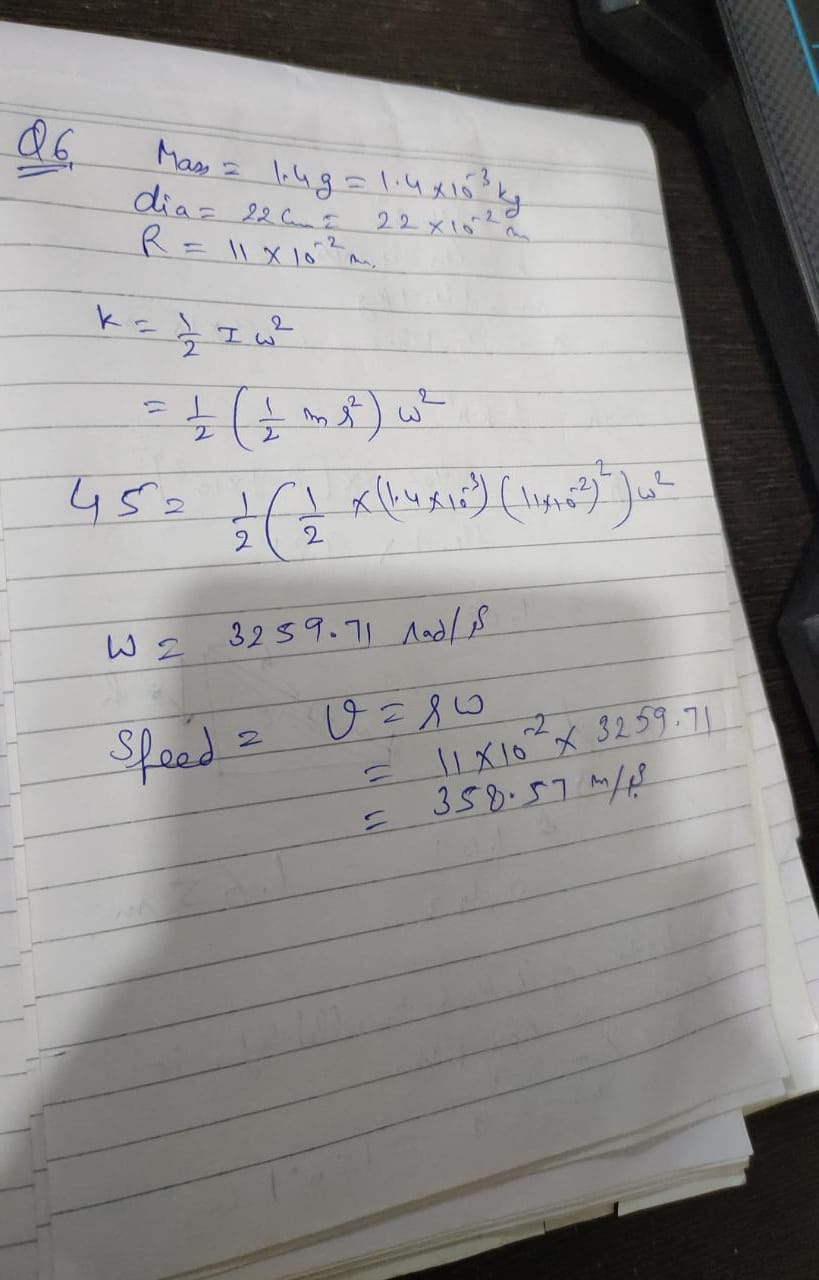 Q6 Mass = 1.4g = 1.4 x 10⁻³ kg
dia = 22 cm = 22 x 10⁻² m
R = 11 x 10⁻² m.
k = 1/2 I ω²
= 1/2 (1/2 m r²) ω²
45 = 1/2 (1/2 x (1.4 x 10⁻³) (11 x 10⁻²)²) ω²
ω = 3259.71 rad/s
Speed = v = rω
= 11 x 10⁻² x 3259.71
= 358.57 m/s